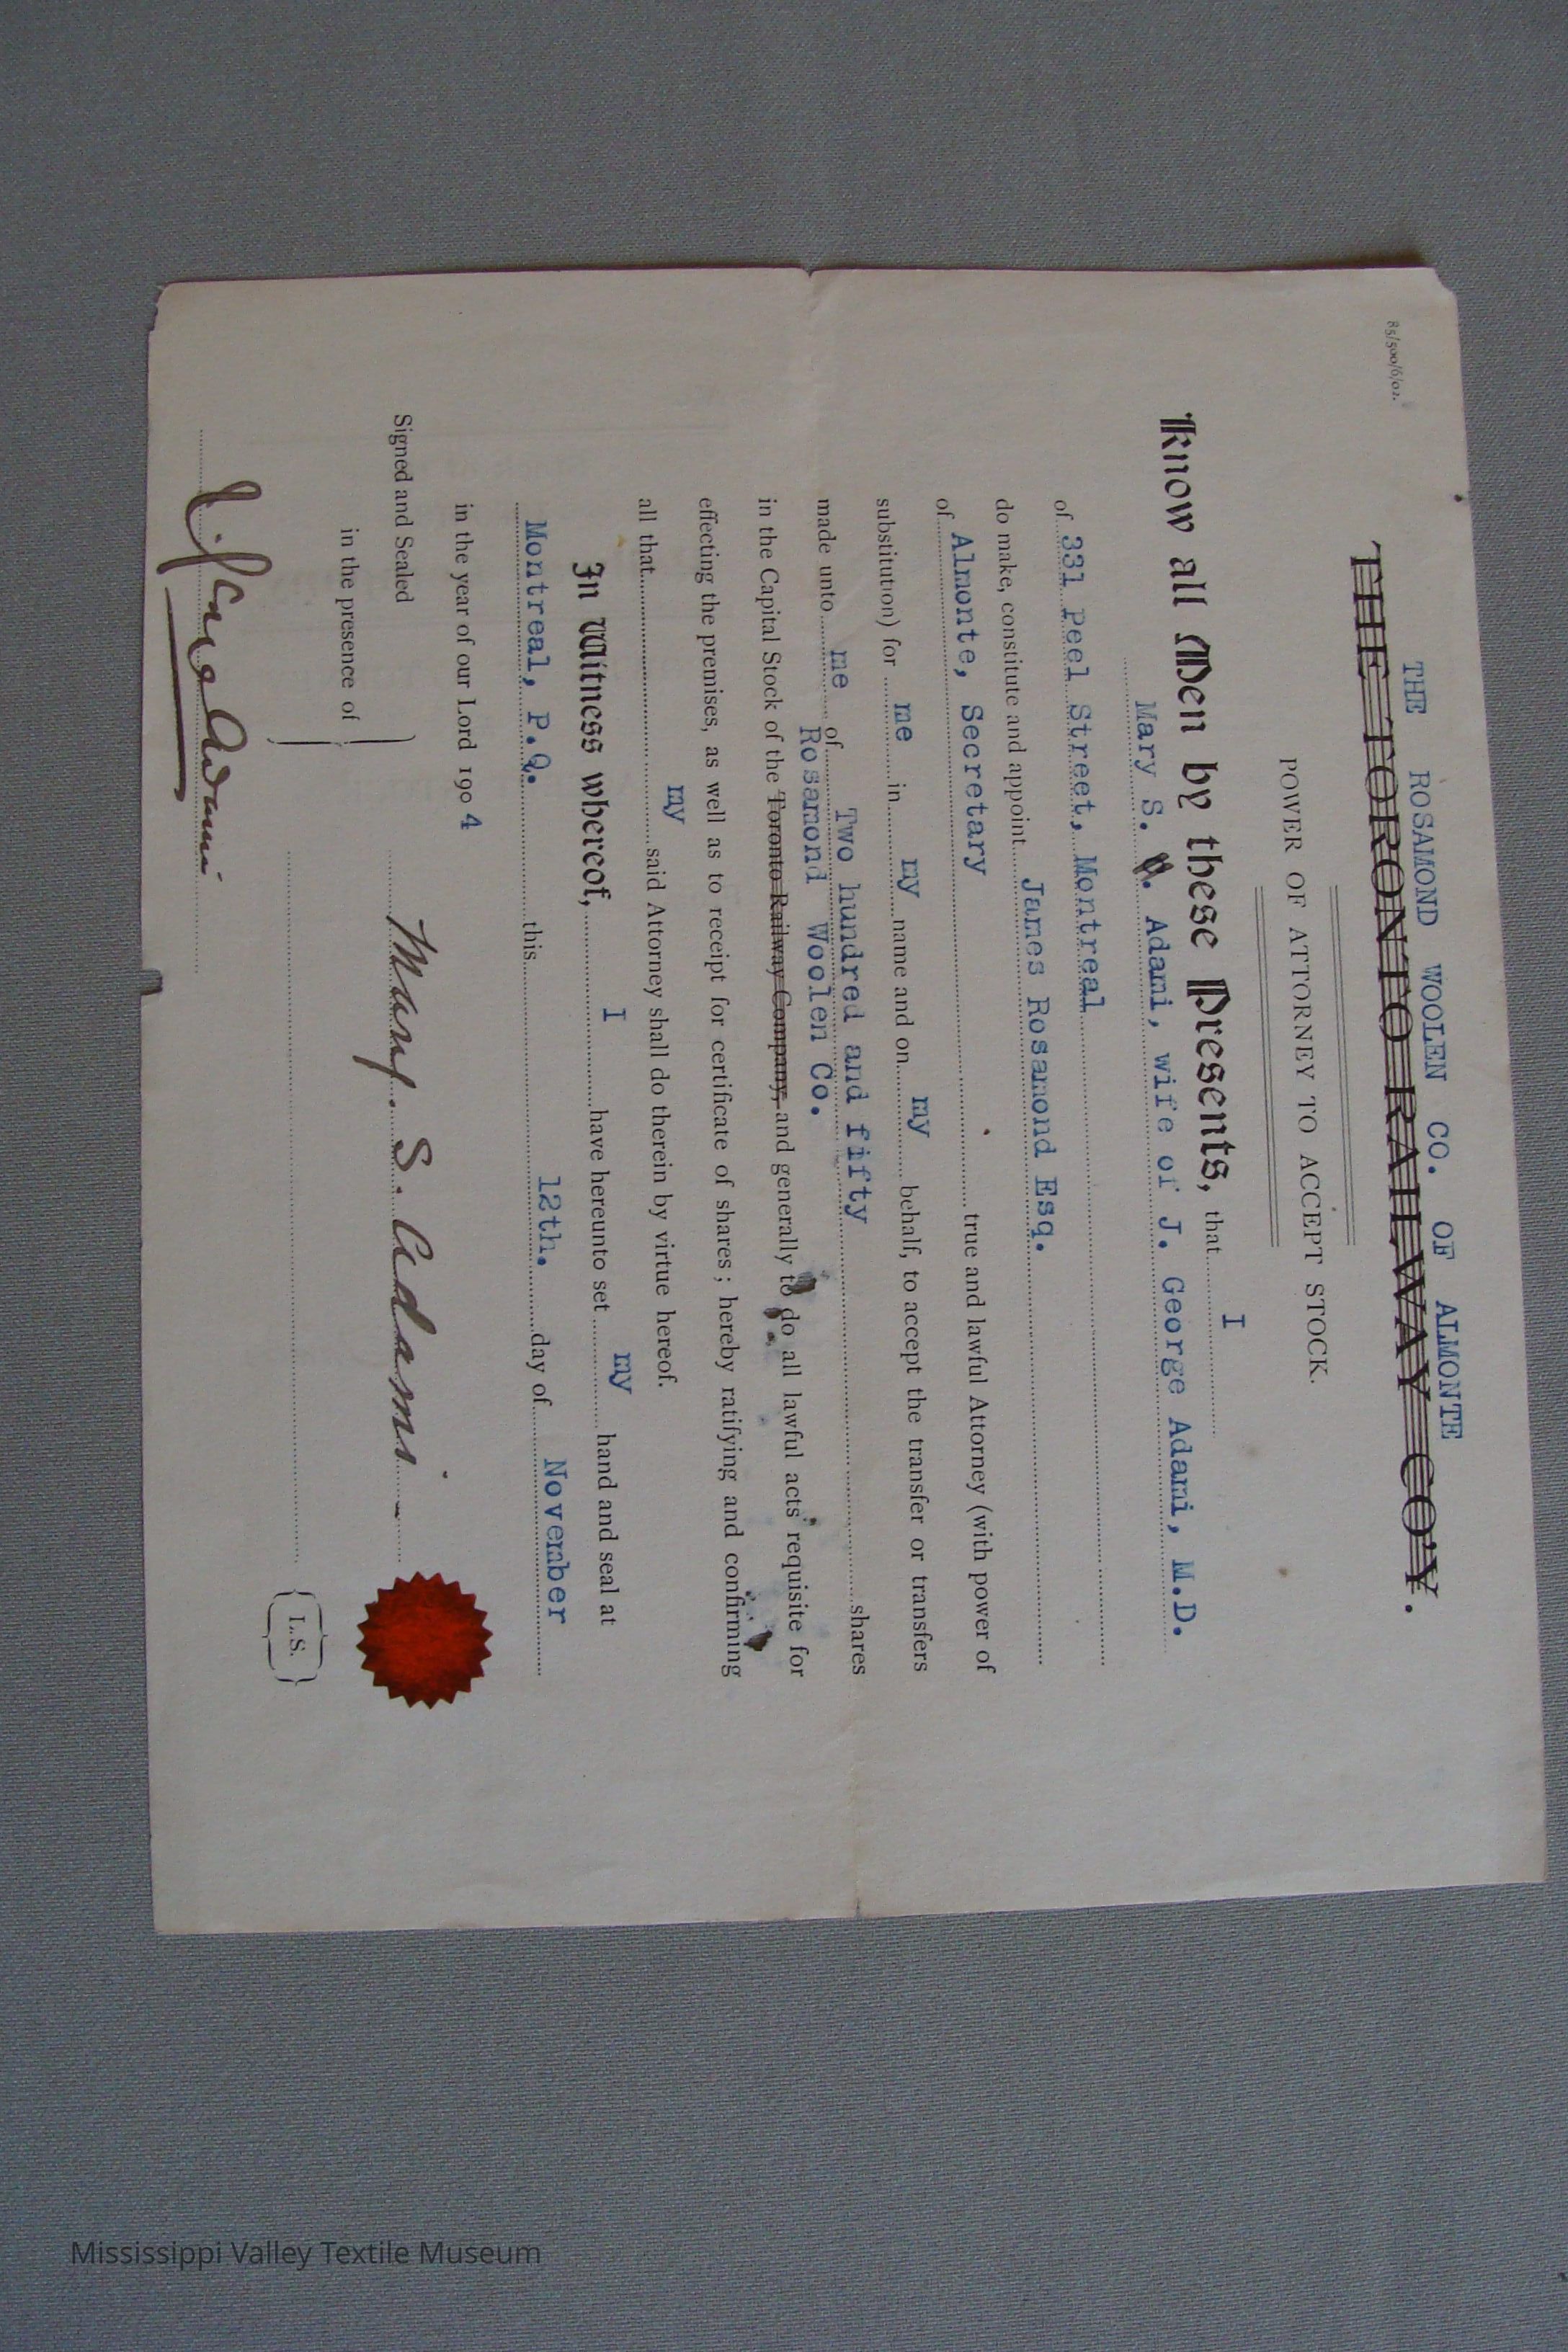 85/500/6/02.
THE ROSAMOND WOOLEN CO. OF ALMONTE
THE TORONTO RAILWAY CO'Y.
POWER OF ATTORNEY TO ACCEPT STOCK.
Know all Men by these Presents, that I
Mary S. Adami, wife of J. George Adami, M.D.
of 331 Peel Street, Montreal
do make, constitute and appoint James Rosamond Esq.
of Almonte, Secretary true and lawful Attorney (with power of
substitution) for me in my name and on my behalf, to accept the transfer or transfers
made unto me of Two hundred and fifty shares
Rosamond Woolen Co.
in the Capital Stock of the Toronto Railway Company, and generally to do all lawful acts requisite for
effecting the premises, as well as to receipt for certificate of shares; hereby ratifying and confirming
all that my said Attorney shall do therein by virtue hereof.
In Witness whereof, I have hereunto set my hand and seal at
Montreal, P.Q. this 12th. day of November
in the year of our Lord 1904
Signed and Sealed
in the presence of
Mary. S. Adami -
J. George Adami
L.S.
Mississippi Valley Textile Museum